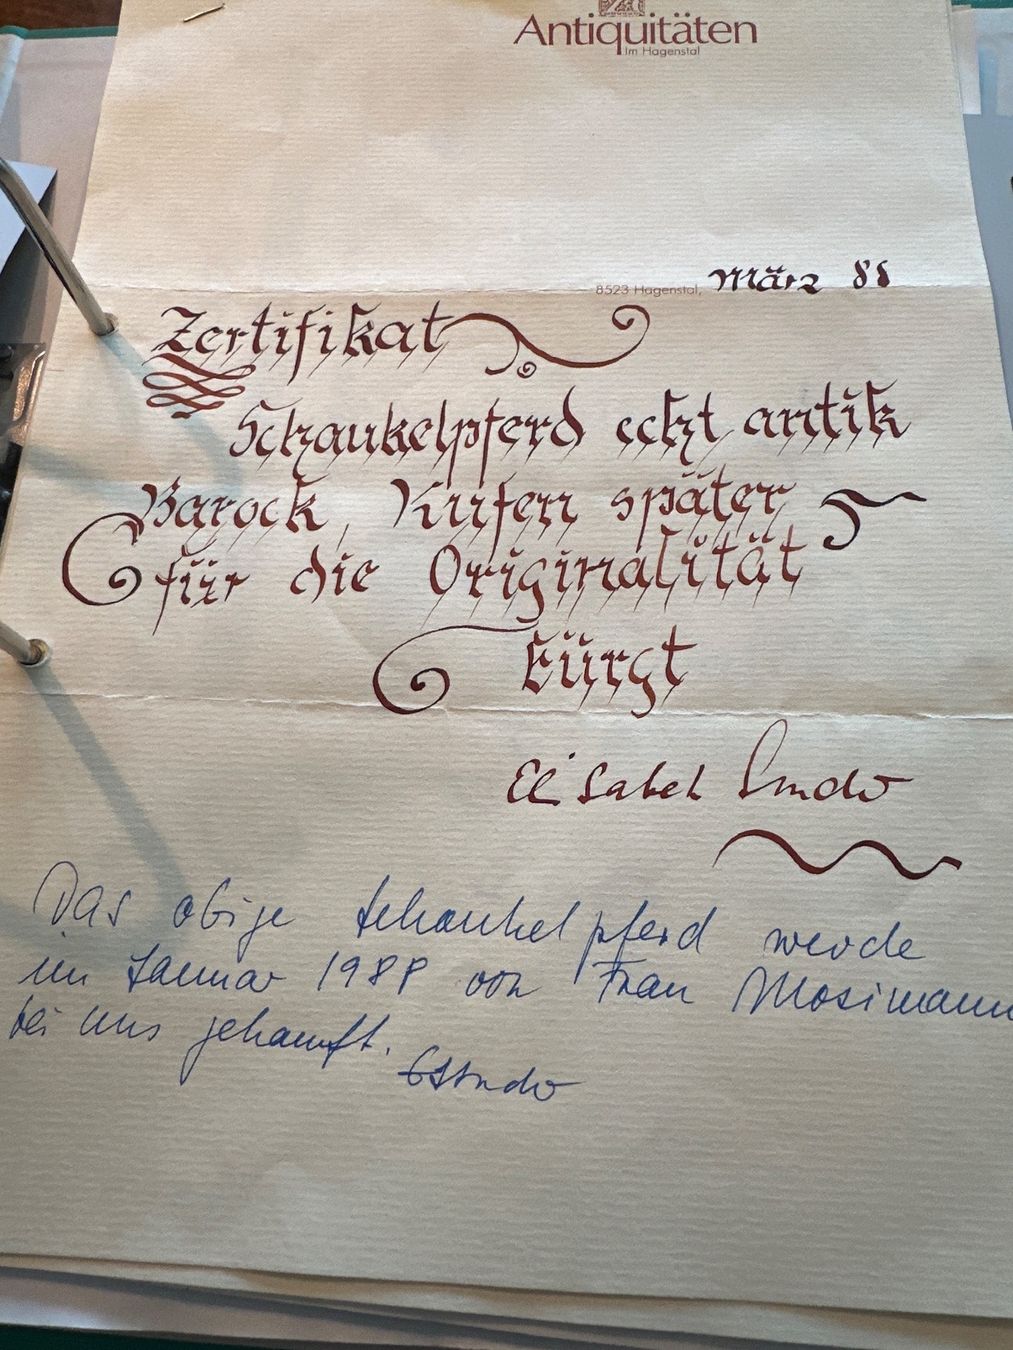 Antiquitäten
Im Hagenstal
8523 Hagenstal, März 88
Zertifikat
Schaukelpferd echt antik
Barock, Kufen später
für die Originalität
bürgt
Elisabeth
Das obige Schaukelpferd wurde
im Januar 1988 von Frau Mosimann
bei uns gekauft.